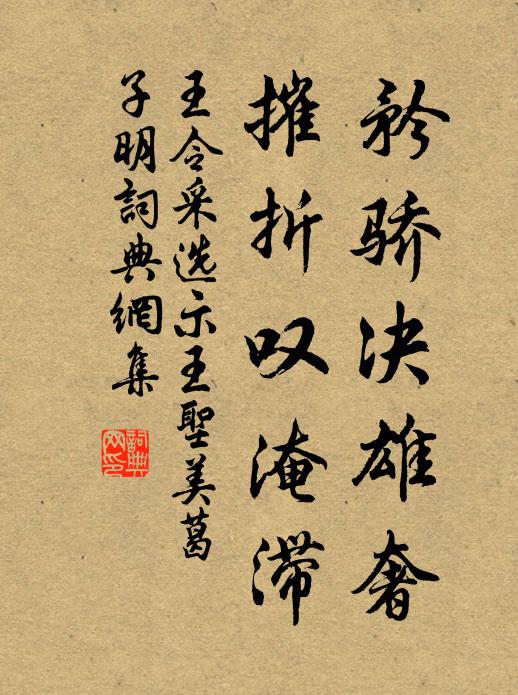 矜骄决雄奢
摧折叹淹滞
王令采选示王聖美葛
子明詞典網集
詞典
网印